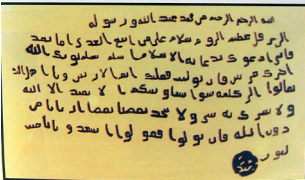 بسم الله الرحمن الرحيم من محمد عبد الله ورسوله
الى هرقل عظيم الروم سلام على من اتبع الهدى اما بعد
فانى ادعوك بدعايه الاسلام اسلم تسلم يوتك الله
اجرك مرتين فان توليت فعليك اثم الاريسين ويا اهل
تعالوا الى كلمه سوا بيننا وبينكم الا نعبد الا الله
ولا نشرك به شيا ولا يتخذ بعضنا بعضا اربابا من
دون الله فان تولوا فقولوا اشهدوا بانا مس
لمون